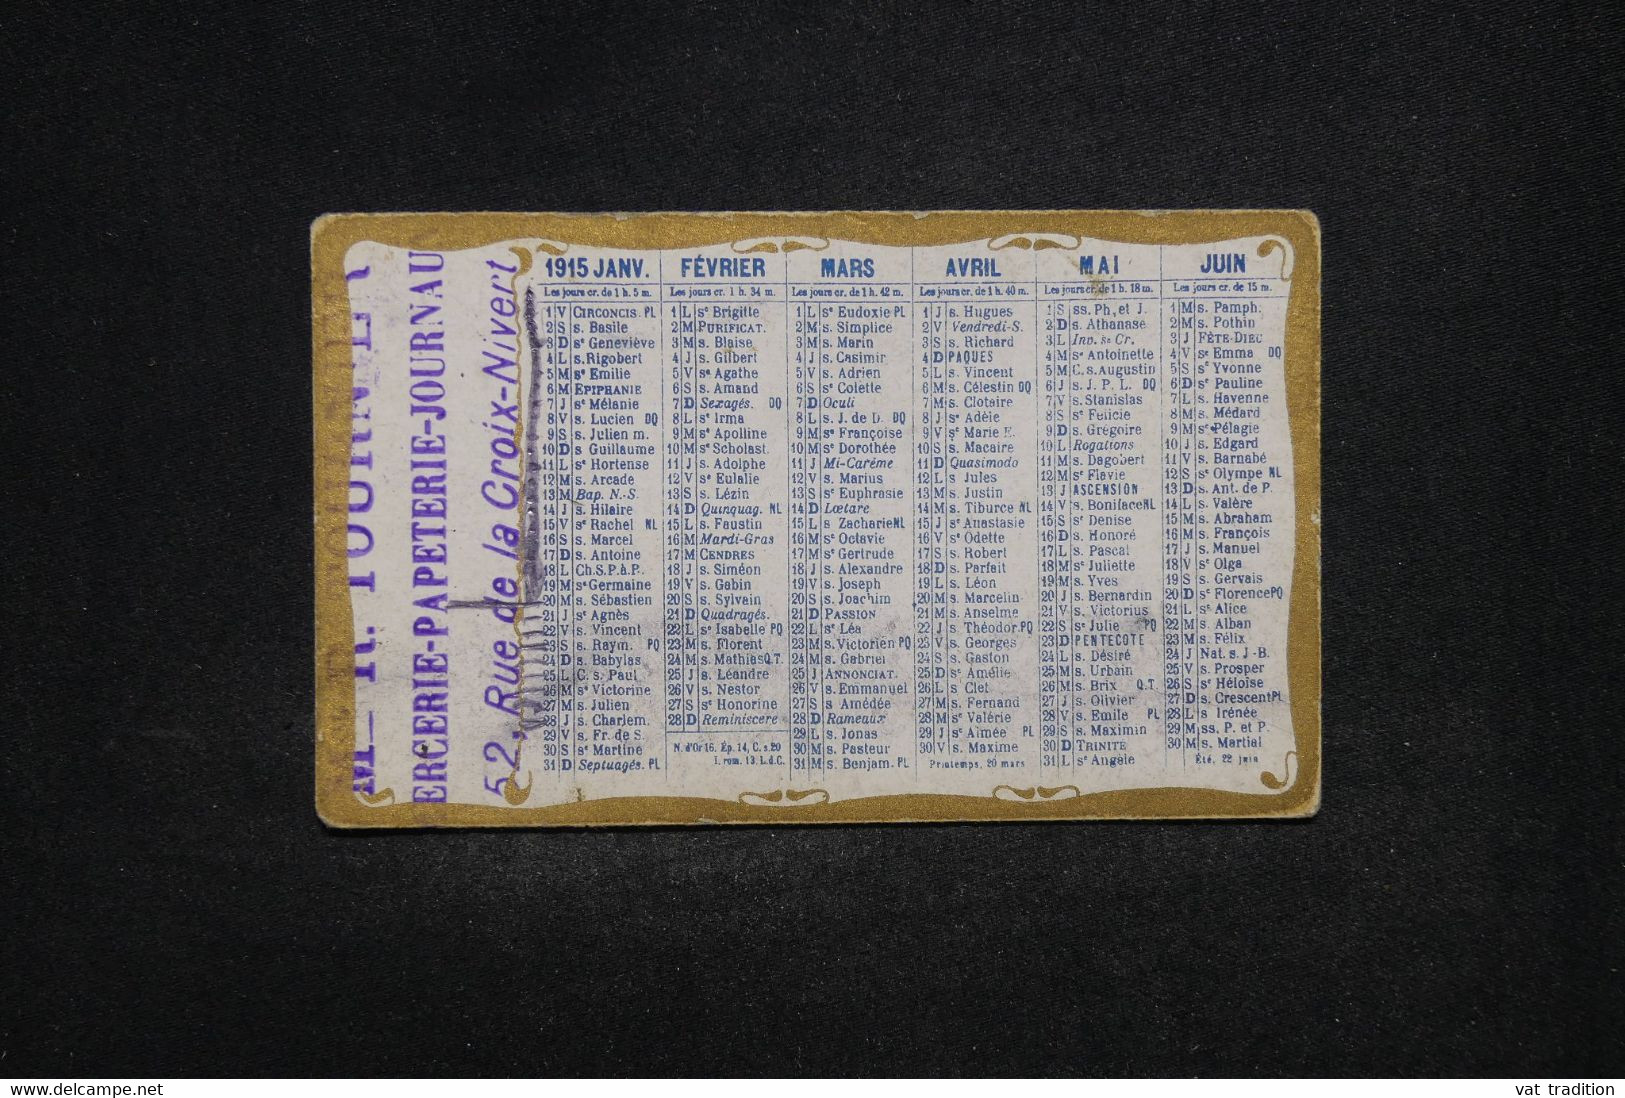 M_ R. TOURNEL
ERCERIE-PAPETERIE-JOURNAU
52, Rue de la Croix-Nivert
1915 JANV.
Les jours cr. de 1 h. 5 m.
1 V CIRCONCIS. PL
2 S s. Basile
3 D se Geneviève
4 L s. Rigobert
5 M se Emilie
6 M EPIPHANIE
7 J se Mélanie
8 V s. Lucien DQ
9 S s. Julien m.
10 D s Guillaume
11 L se Hortense
12 M s. Arcade
13 M Bap. N.-S.
14 J s. Hilaire
15 V se Rachel NL
16 S s. Marcel
17 D s. Antoine
18 L Ch.S.P.à.P.
19 M se Germaine
20 M s. Sébastien
21 J se Agnès
22 V s. Vincent
23 S s. Raym. PQ
24 D s. Babylas
25 L C. s. Paul
26 M se Victorine
27 M s. Julien
28 J s. Charlem.
29 V s. Fr. de S.
30 S se Martine
31 D Septuagés. PL
FÉVRIER
Les jours cr. 1 h. 34 m.
1 L se Brigitte
2 M PURIFICAT.
3 M s. Blaise
4 J s. Gilbert
5 V se Agathe
6 S s. Amand
7 D Sexagés. DQ
8 L se Irma
9 M se Apolline
10 M se Scholast.
11 J s. Adolphe
12 V se Eulalie
13 S s. Lézin
14 D Quinquag. NL
15 L s. Faustin
16 M Mardi-Gras
17 M CENDRES
18 J s. Siméon
19 V s. Gabin
20 S s. Sylvain
21 D Quadragés.
22 L se Isabelle PQ
23 M s. Florent
24 M s. Mathias Q.T.
25 J s. Léandre
26 V s. Nestor
27 S se Honorine
28 D Reminiscere
N. d'Or 16. Ép. 14, C. s. 20
I. rom. 13. L.d.C.
MARS
Les jours cr. de 1 h. 42 m.
1 L se Eudoxie PL
2 M s. Simplice
3 M s. Marin
4 J s. Casimir
5 V s. Adrien
6 S se Colette
7 D Oculi
8 L s. J. de D. DQ
9 M se Françoise
10 M se Dorothée
11 J Mi-Carême
12 V s. Marius
13 S se Euphrasie
14 D Lœtare
15 L s Zacharie NL
16 M se Octavie
17 M se Gertrude
18 J s. Alexandre
19 V s. Joseph
20 S s. Joachim
21 D PASSION
22 L se Léa
23 M s. Victorien PQ
24 M s. Gabriel
25 J ANNONCIAT.
26 V s. Emmanuel
27 S s Amédée
28 D Rameaux
29 L s. Jonas
30 M s. Pasteur
31 M s. Benjam. PL
AVRIL
Les jours cr. de 1 h. 40 m.
1 J s. Hugues
2 V Vendredi-S.
3 S s. Richard
4 D PAQUES
5 L s. Vincent
6 M s. Célestin DQ
7 M s. Clotaire
8 J se Adèle
9 V se Marie E.
10 S s. Macaire
11 D Quasimodo
12 L s Jules
13 M s. Justin
14 M s. Tiburce NL
15 J se Anastasie
16 V se Odette
17 S s. Robert
18 D s. Parfait
19 L s. Léon
20 M s. Marcelin
21 M s. Anselme
22 J s. Théodor. PQ
23 V s. Georges
24 S s. Gaston
25 D se Amélie
26 L s Clet
27 M s. Fernand
28 M se Valérie
29 J se Aimée PL
30 V s. Maxime
Printemps, 20 mars
MAI
Les jours cr. de 1 h. 18 m.
1 S ss. Ph, et J.
2 D s. Athanase
3 L Inv. se Cr.
4 M se Antoinette
5 M C. s. Augustin
6 J s. J. P. L. DQ
7 V s. Stanislas
8 S se Felicie
9 D s. Grégoire
10 L Rogations
11 M s. Dagobert
12 M se Flavie
13 J ASCENSION
14 V s. Boniface NL
15 S se Denise
16 D s. Honoré
17 L s. Pascal
18 M se Juliette
19 M s. Yves
20 J s. Bernardin
21 V s. Victorius
22 S se Julie PQ
23 D PENTECOTE
24 L s. Désiré
25 M s. Urbain
26 M s. Brix Q.T
27 J s. Olivier
28 V s. Emile PL
29 S s. Maximin
30 D TRINITE
31 L se Angèle
JUIN
Les jours cr. de 15 m.
1 M s. Pamph.
2 M s. Pothin
3 J FÊTE-DIEU
4 V se Emma DQ
5 S se Yvonne
6 D se Pauline
7 L s. Havenne
8 M s. Médard
9 M se Pélagie
10 J s. Edgard
11 V s. Barnabé
12 S se Olympe NL
13 D s. Ant. de P.
14 L s. Valère
15 M s. Abraham
16 M s. François
17 J s. Manuel
18 V se Olga
19 S s. Gervais
20 D se Florence PQ
21 L se Alice
22 M s. Alban
23 M s. Félix
24 J Nat. s. J-B.
25 V s. Prosper
26 S se Héloïse
27 D s. Crescent PL
28 L s Irénée
29 M ss. P. et P.
30 M s. Martial
Été, 22 juin
www.delcampe.net
vat tradition